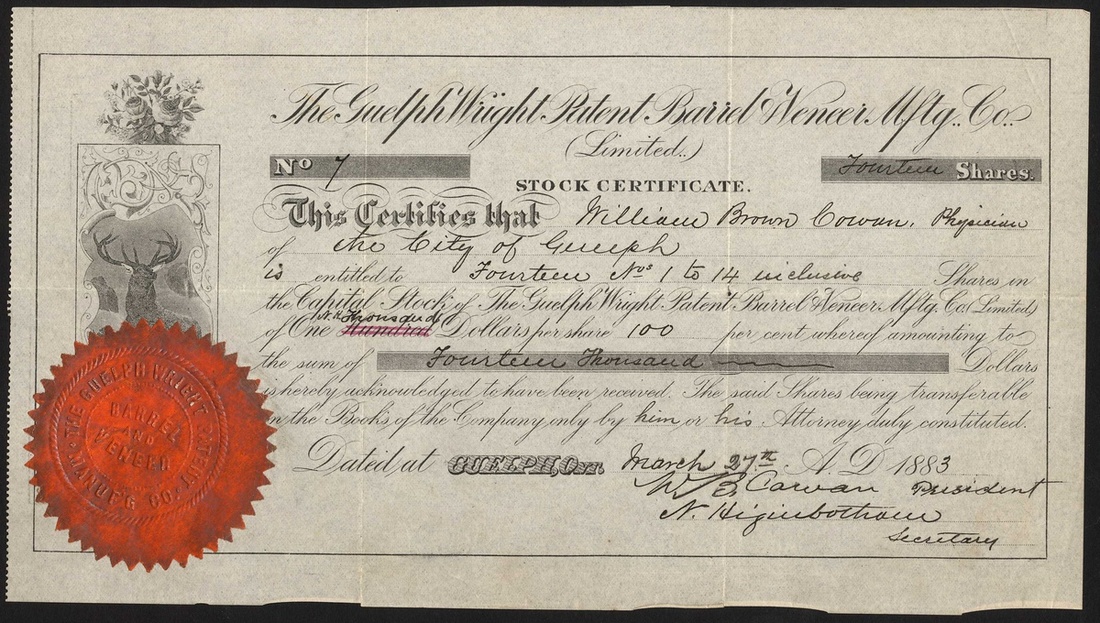 The Guelph Wright Patent Barrel & Veneer Mftg. Co.
(Limited.)
No 7
Fourteen Shares.
STOCK CERTIFICATE.
This Certifies that William Brown Cowan, Physician
of the City of Guelph
is entitled to Fourteen Nos 1 to 14 inclusive Shares in
the Capital Stock of The Guelph Wright Patent Barrel & Veneer Mftg. Co. (Limited)
N.H. Thousand
of One Hundred Dollars per share 100 per cent whereof amounting to
the sum of Fourteen Thousand Dollars
is hereby acknowledged to have been received. The said Shares being transferable
on the Books of the Company only by him or his Attorney duly constituted.
Dated at GUELPH, Ont. March 27th A.D 1883
W B Cowan President
N. Higinbotham
Secretary
THE GUELPH WRIGHT PATENT
BARREL
AND
VENEER
MANUF'G CO. LTD